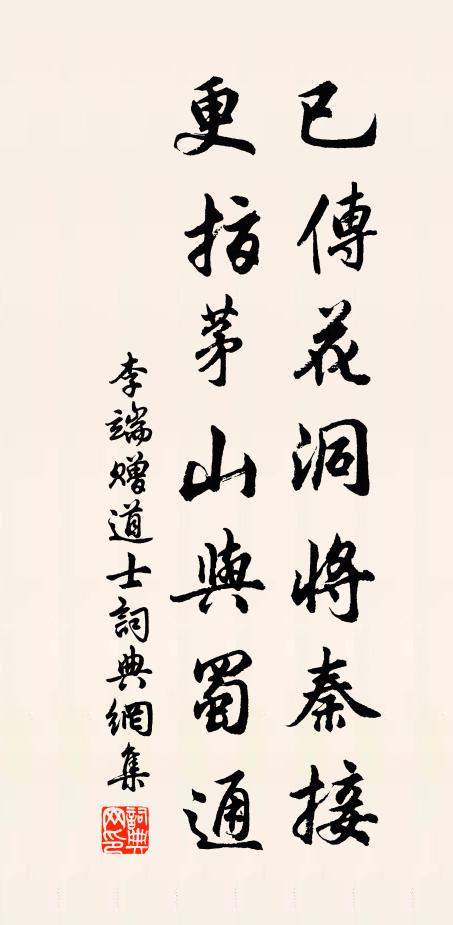 已傳花洞將秦接
更指茅山與蜀通
李端贈道士詞典網集
詞典網印